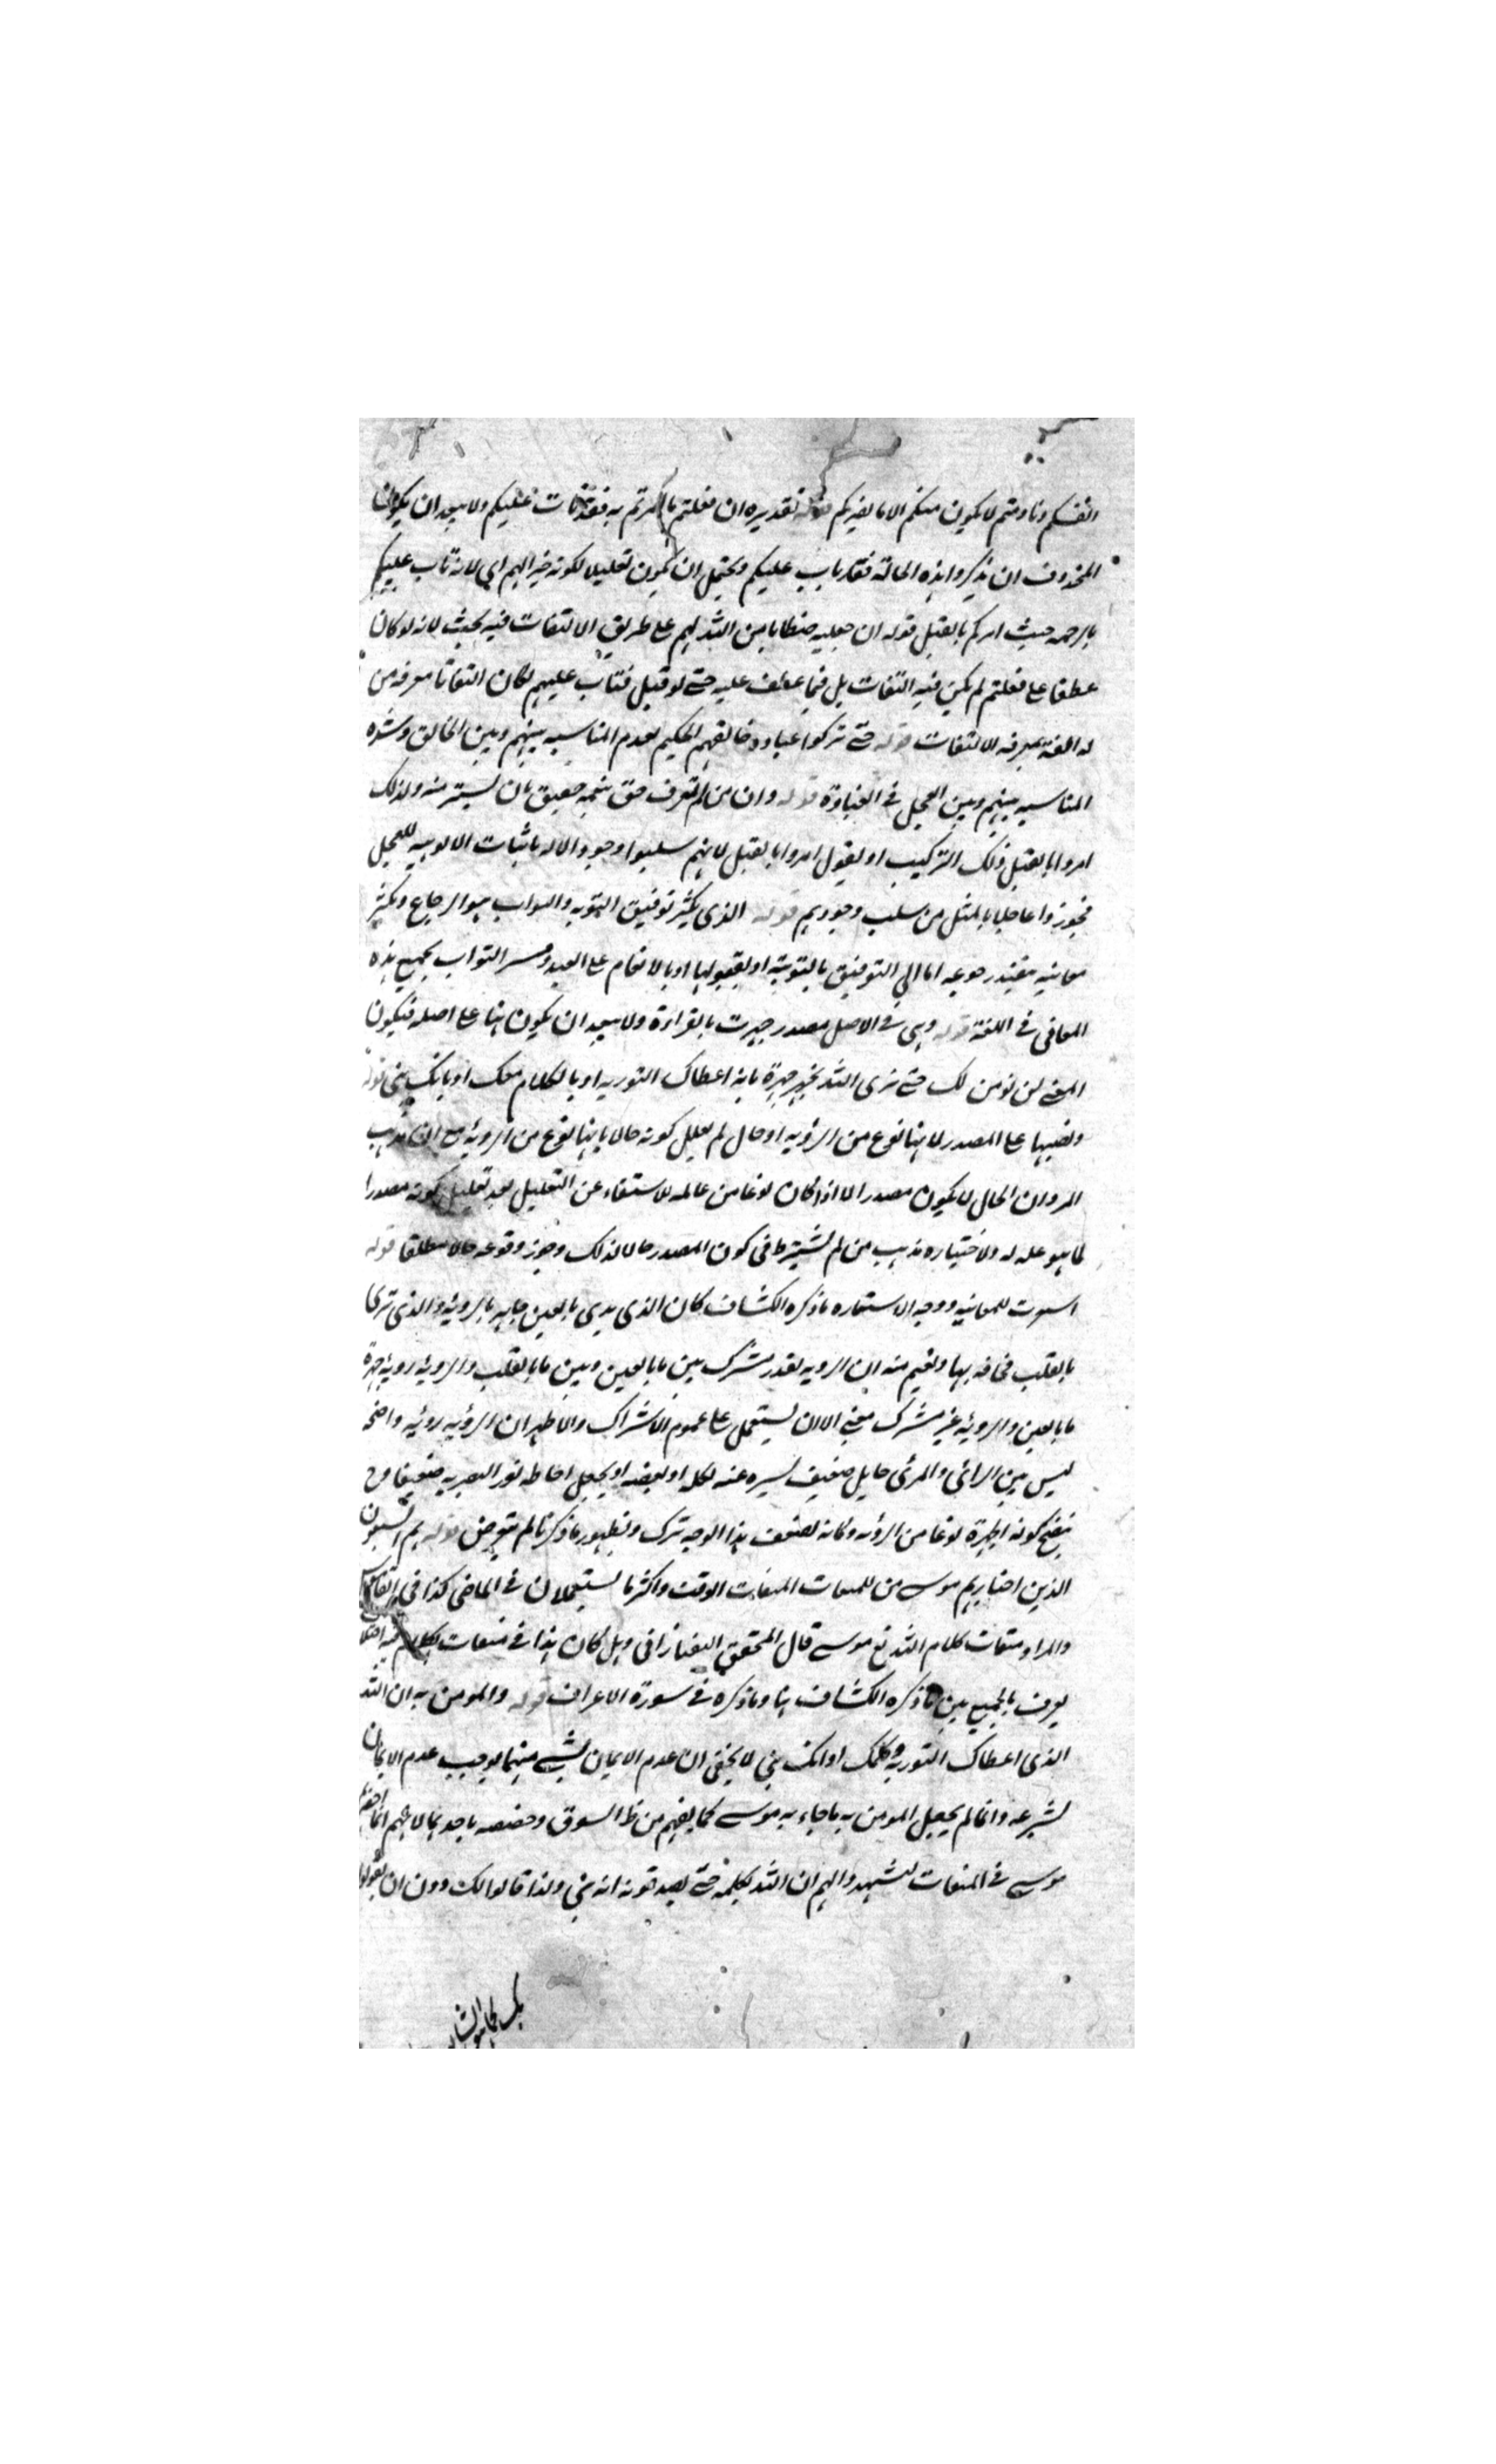 انفسكم وما دمتم لا يكون منكم الا ما يضركم قوله تقديره ان فعلتم ما امرتم به فقد تاب عليكم ولا يبعد ان يكون
المحذوف ان تذكروا هذه الحالة فقد تاب عليكم ويحتمل ان يكون تعليلا لكونه خيرا لهم اي لانه تاب عليكم
بالرحمة حيث امركم بالقتل قوله ان جعلته خطابا من الله لهم على طريق الالتفات فيه بحث لانه لو كان
عطفا على فعلتم لم يكن فيه التفات بل فيما عطف عليه حتى لو قيل فتاب عليهم لكان التفاتا معرفه من
له الفة بمعرفة الالتفات قوله حتى تركوا عبادة خالقهم الحكيم لعدم المناسبة بينهم وبين الخالق وشدة
المناسبة بينهم وبين العجل في الغباوة قوله وان من لم يعرف حق منعمه حقيق بان يسترد منه ولذلك
امروا بالقتل وفك التركيب او نقول امروا بالقتل لانهم سلبوا وجود الاله باثبات الالوهية للعجل
فجوزوا عاجلا بالمثل من سلب وجودهم قوله الذي يكثر توفيق التوبة والتواب هو الرجاع وتكثر
معانيه بتقييد رجوعه اما الى التوفيق بالتوبة او بقبولها او بالانعام على العبد وفسر التواب بجميع هذه
المعاني في اللغة قوله وهي في الاصل مصدر جهرت بالقراءة ولا يبعد ان يكون هنا على اصله فيكون
المعنى لن نؤمن لك حتى نرى الله يخبر جهرة بانه اعطاك التورية او بالكلام معك او بانك نبي قوله
ونصبها على المصدر لانها نوع من الرؤية او حال لم يعلل كونه حالا بانها نوع من الرؤية مع ان مذهب
المبرد ان الحال لا يكون مصدرا الا اذا كان نوعا من عامله للاستغناء عن التعليل بعد تعليل كونه مصدرا
لما هو علة له ولاختياره مذهب من لم يشترط في كون المصدر حالا لذلك وجوز وقوعه حالا مطلقا قوله
استعيرت للمعاينة ووجه الاستعارة ما ذكره الكشاف كان الذي يرى بالعين جاهر بالرؤية والذي يرى
بالقلب مخافت بها ويفهم منه ان الرؤية لقدر مشترك بين ما بالعين وبين ما بالقلب والرؤية رؤية جهرة
ما بالعين والرؤية غير مشترك معنى الا ان يستعمل على عموم الاشتراك والاظهر ان الرؤية رؤية واضحة
ليس بين الرائي والمرئي حايل ضعيف يستره عنه لكله او لبعضه او يجعل احاطة نور البصر به ضعيفا وح
يتضح كونه الجهرة نوعا من الرؤية وكانه لضعف هذا الوجه ترك ولظهور ما ذكرنا لم يتعرض قوله هم السبعون
الذين اختارهم موسى من للميقات الميقات الوقت واكثر ما يستعملان في الماضي كذا في
والمراد ميقات كلام الله تع موسى قال المحقق التفتازاني وهل كان هذا في ميقات الكلام فيه اختلاف
يعرف بالجمع بين ما ذكره الكشاف هنا وما ذكره في سورة الاعراف قوله والمؤمن به ان الله
الذي اعطاك التورية وكلمك او انك نبي لا يخفى ان عدم الايمان بشيء منهما يوجب عدم الايمان
لشرعه وانما لم يجعل المؤمن به ما جاء به موسى كما يفهم من ظ السوق وخصصه باحدهما لانهم انما
موسى في الميقات ليشهدوا لهم ان الله يكلمه حتى يصدقونه انه نبي ولذا قالوا لك دون ان يقولوا